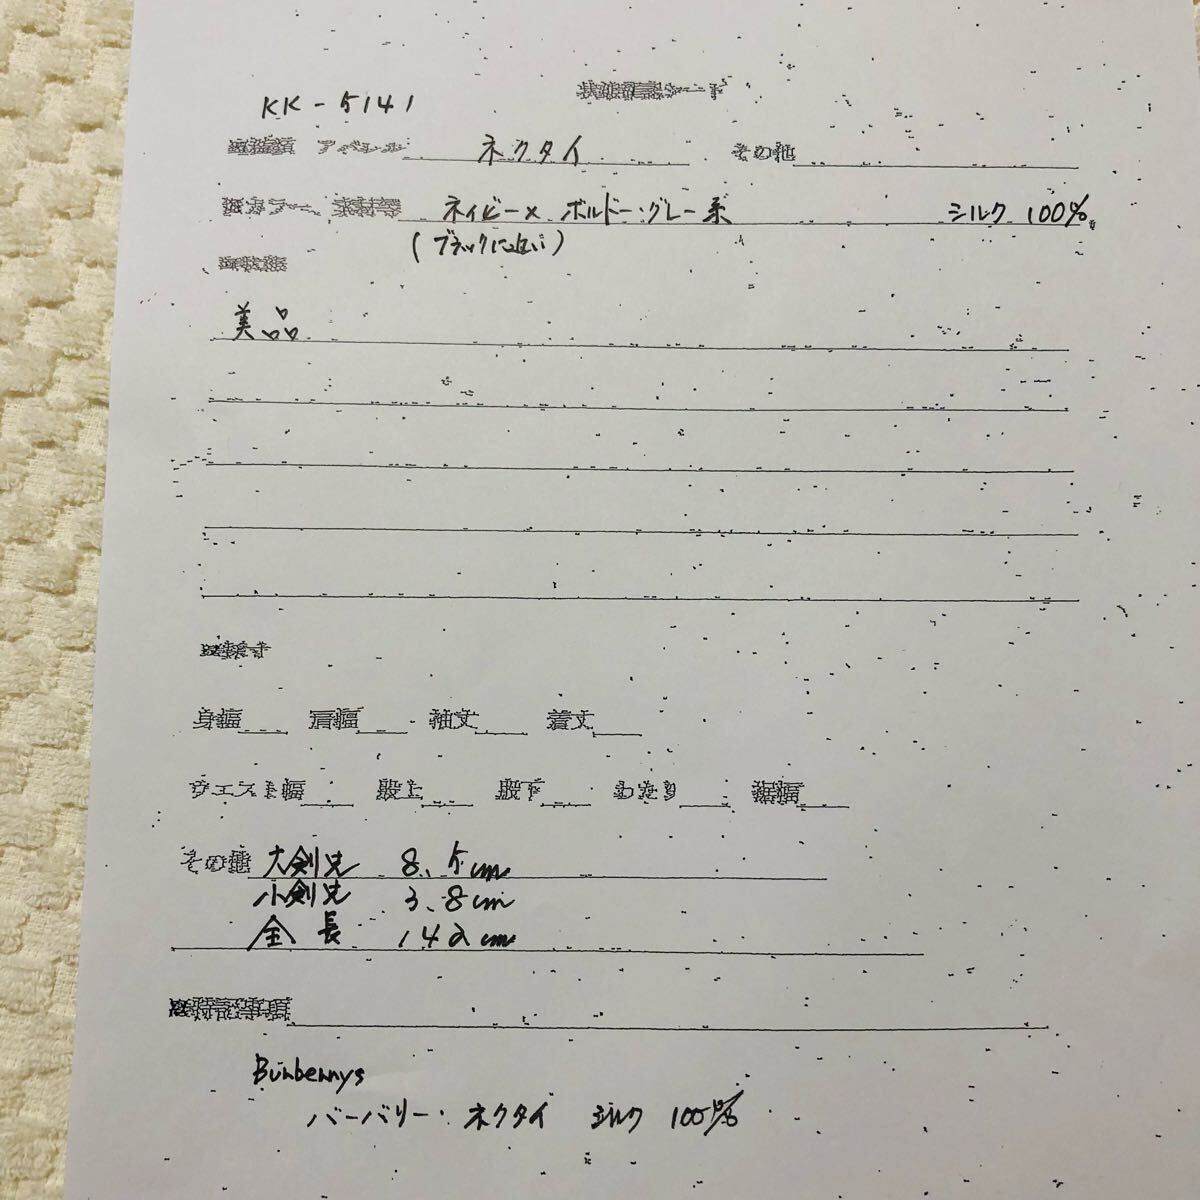 KK-5141
状態確認シート
□種類 アパレル ネクタイ その他
□カラー、素材等 ネイビー×ボルドー・グレー系 シルク 100%
(ブラックに近い)
□状態
美品
□採寸
身幅 肩幅 袖丈 着丈
ウエスト幅 股上 股下 わたり 裾幅
その他 大剣先 8.5cm
小剣先 3.8cm
全長 142cm
特記事項
Burberrys
バーバリー・ネクタイ シルク 100%